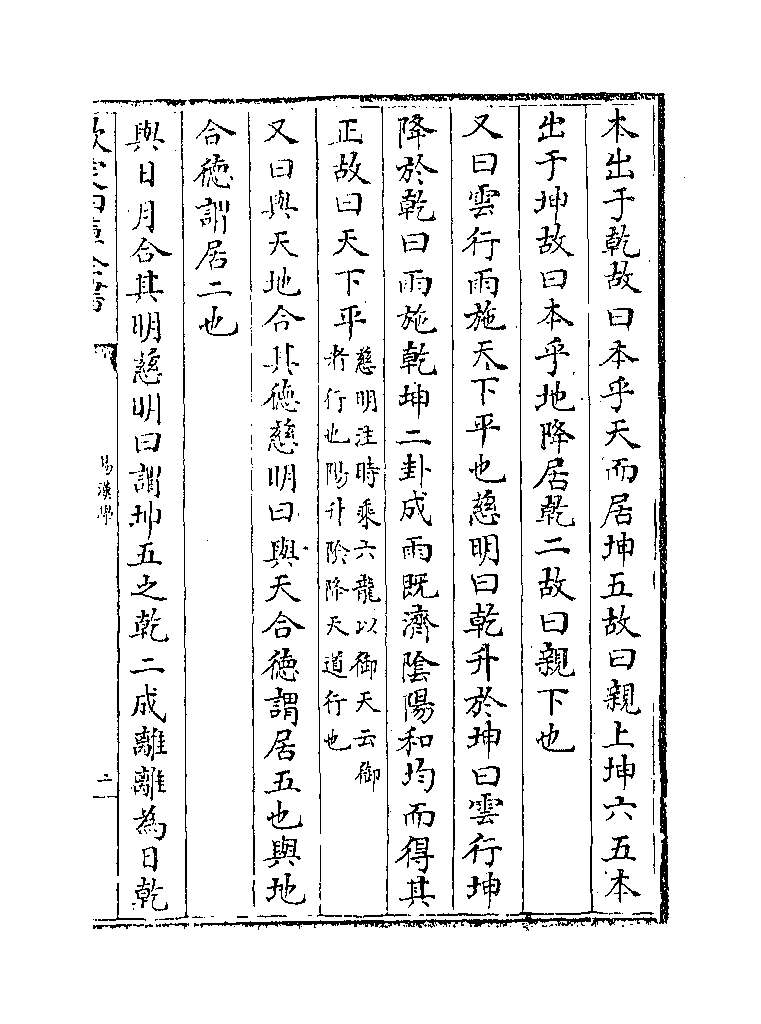 本出于乾故曰本乎天而居坤五故曰親上坤六五本
出于坤故曰本乎地降居乾二故曰親下也
又曰雲行雨施天下平也慈明曰乾升於坤曰雲行坤
降於乾曰雨施乾坤二卦成兩既濟陰陽和均而得其
正故曰天下平
慈明注時乗六龍以御天云御
者行也陽升隂降天道行也
又曰與天地合其徳慈明曰與天合徳謂居五也與地
合徳謂居二也
與日月合其明慈明曰謂坤五之乾二成離離為日乾
欽定四庫全書
易漢學
二